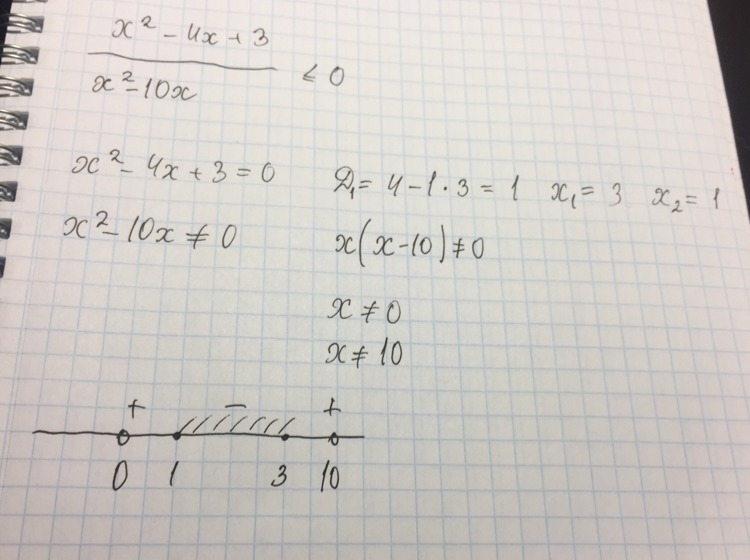 x² - 4x + 3
x² - 10x
≤ 0
x² - 4x + 3 = 0 D₁ = 4 - 1 · 3 = 1 x₁ = 3 x₂ = 1
x² - 10x ≠ 0 x(x - 10) ≠ 0
x ≠ 0
x ≠ 10
+ − +
0 1 3 10